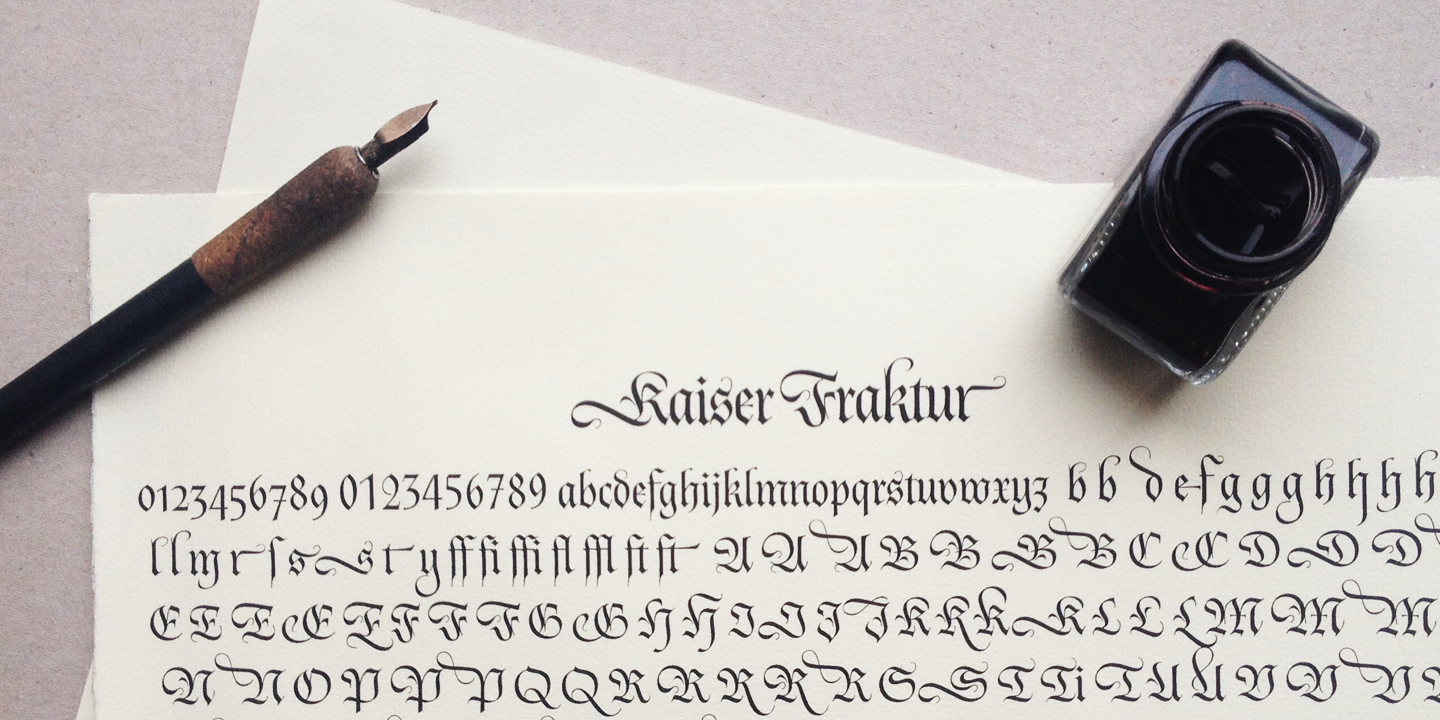 Kaiser Fraktur
0123456789 0123456789 abcdefghijklmnopqrstuvwxyz b b d e f g g g h h h h
l l m r ſ s s t y ff fi ffi fl ffl ſi ſt A A A B B B B C C C D D D
E E E E F F F F G G H H I I J J K K K K L L L M M M
N N O P P P Q Q R R R R R S S T Ti T U U V V V